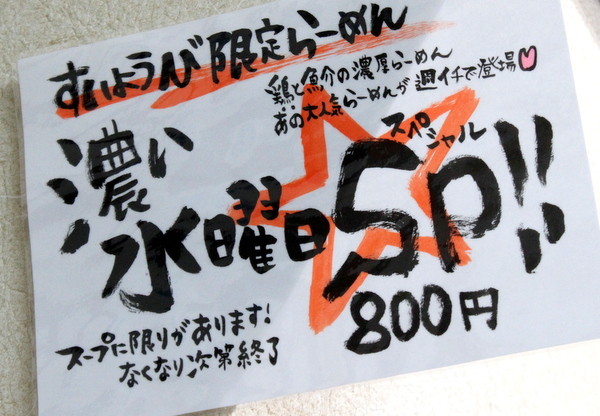 すいようび限定らーめん
鶏と魚介の濃厚らーめん
あの大人気らーめんが週イチで登場♥
濃い
スペシャル
水曜日SP!!
800円
スープに限りがあります!
なくなり次第終了